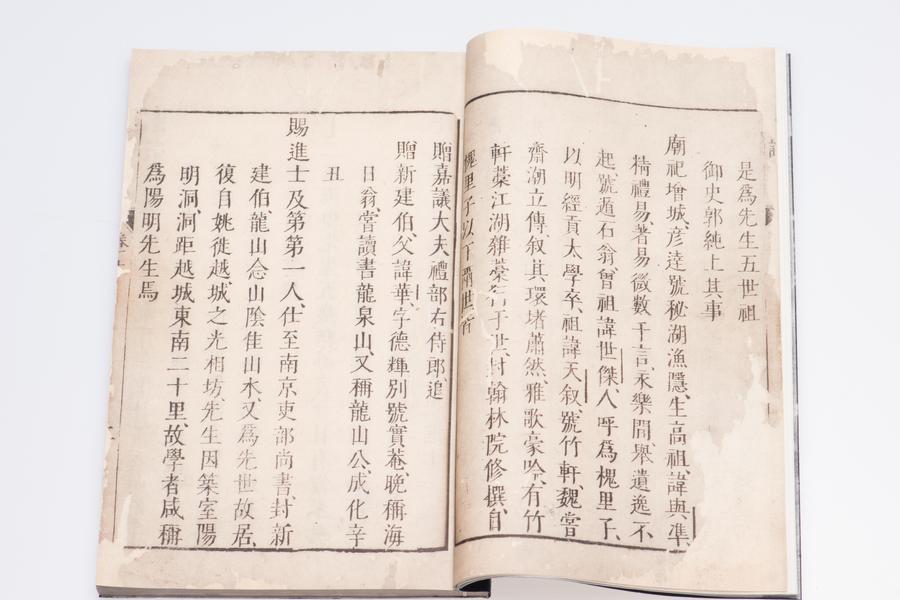 是爲先生五世祖
御史郭純上其事
廟祀增城、彦達號秘湖漁隱、生高祖、諱與準、
精禮易、著易微數千言、永樂間、舉遺逸、不
起、號遁石翁、曾祖諱世傑、人呼爲槐里子、
以明經貢太學卒、祖諱天叙、號竹軒、魏嘗
齋瀚立傳、叙其環堵蕭然、雅歌豪吟、有竹
軒藁江湖雜藁行于世、封翰林院修撰、自
槐里子以下兩世皆
贈嘉議大夫禮部右侍郎、追
贈新建伯、父諱華、字德輝、別號實菴、晩稱海
日翁、嘗讀書龍泉山、又稱龍山公、成化辛
丑
賜進士及第第一人、仕至南京吏部尚書、封新
建伯、龍山念山陰佳山水、又爲先世故居、
復自姚徙越城之光相坊、先生因築室陽
明洞、洞距越城東南二十里、故學者咸稱
爲陽明先生焉